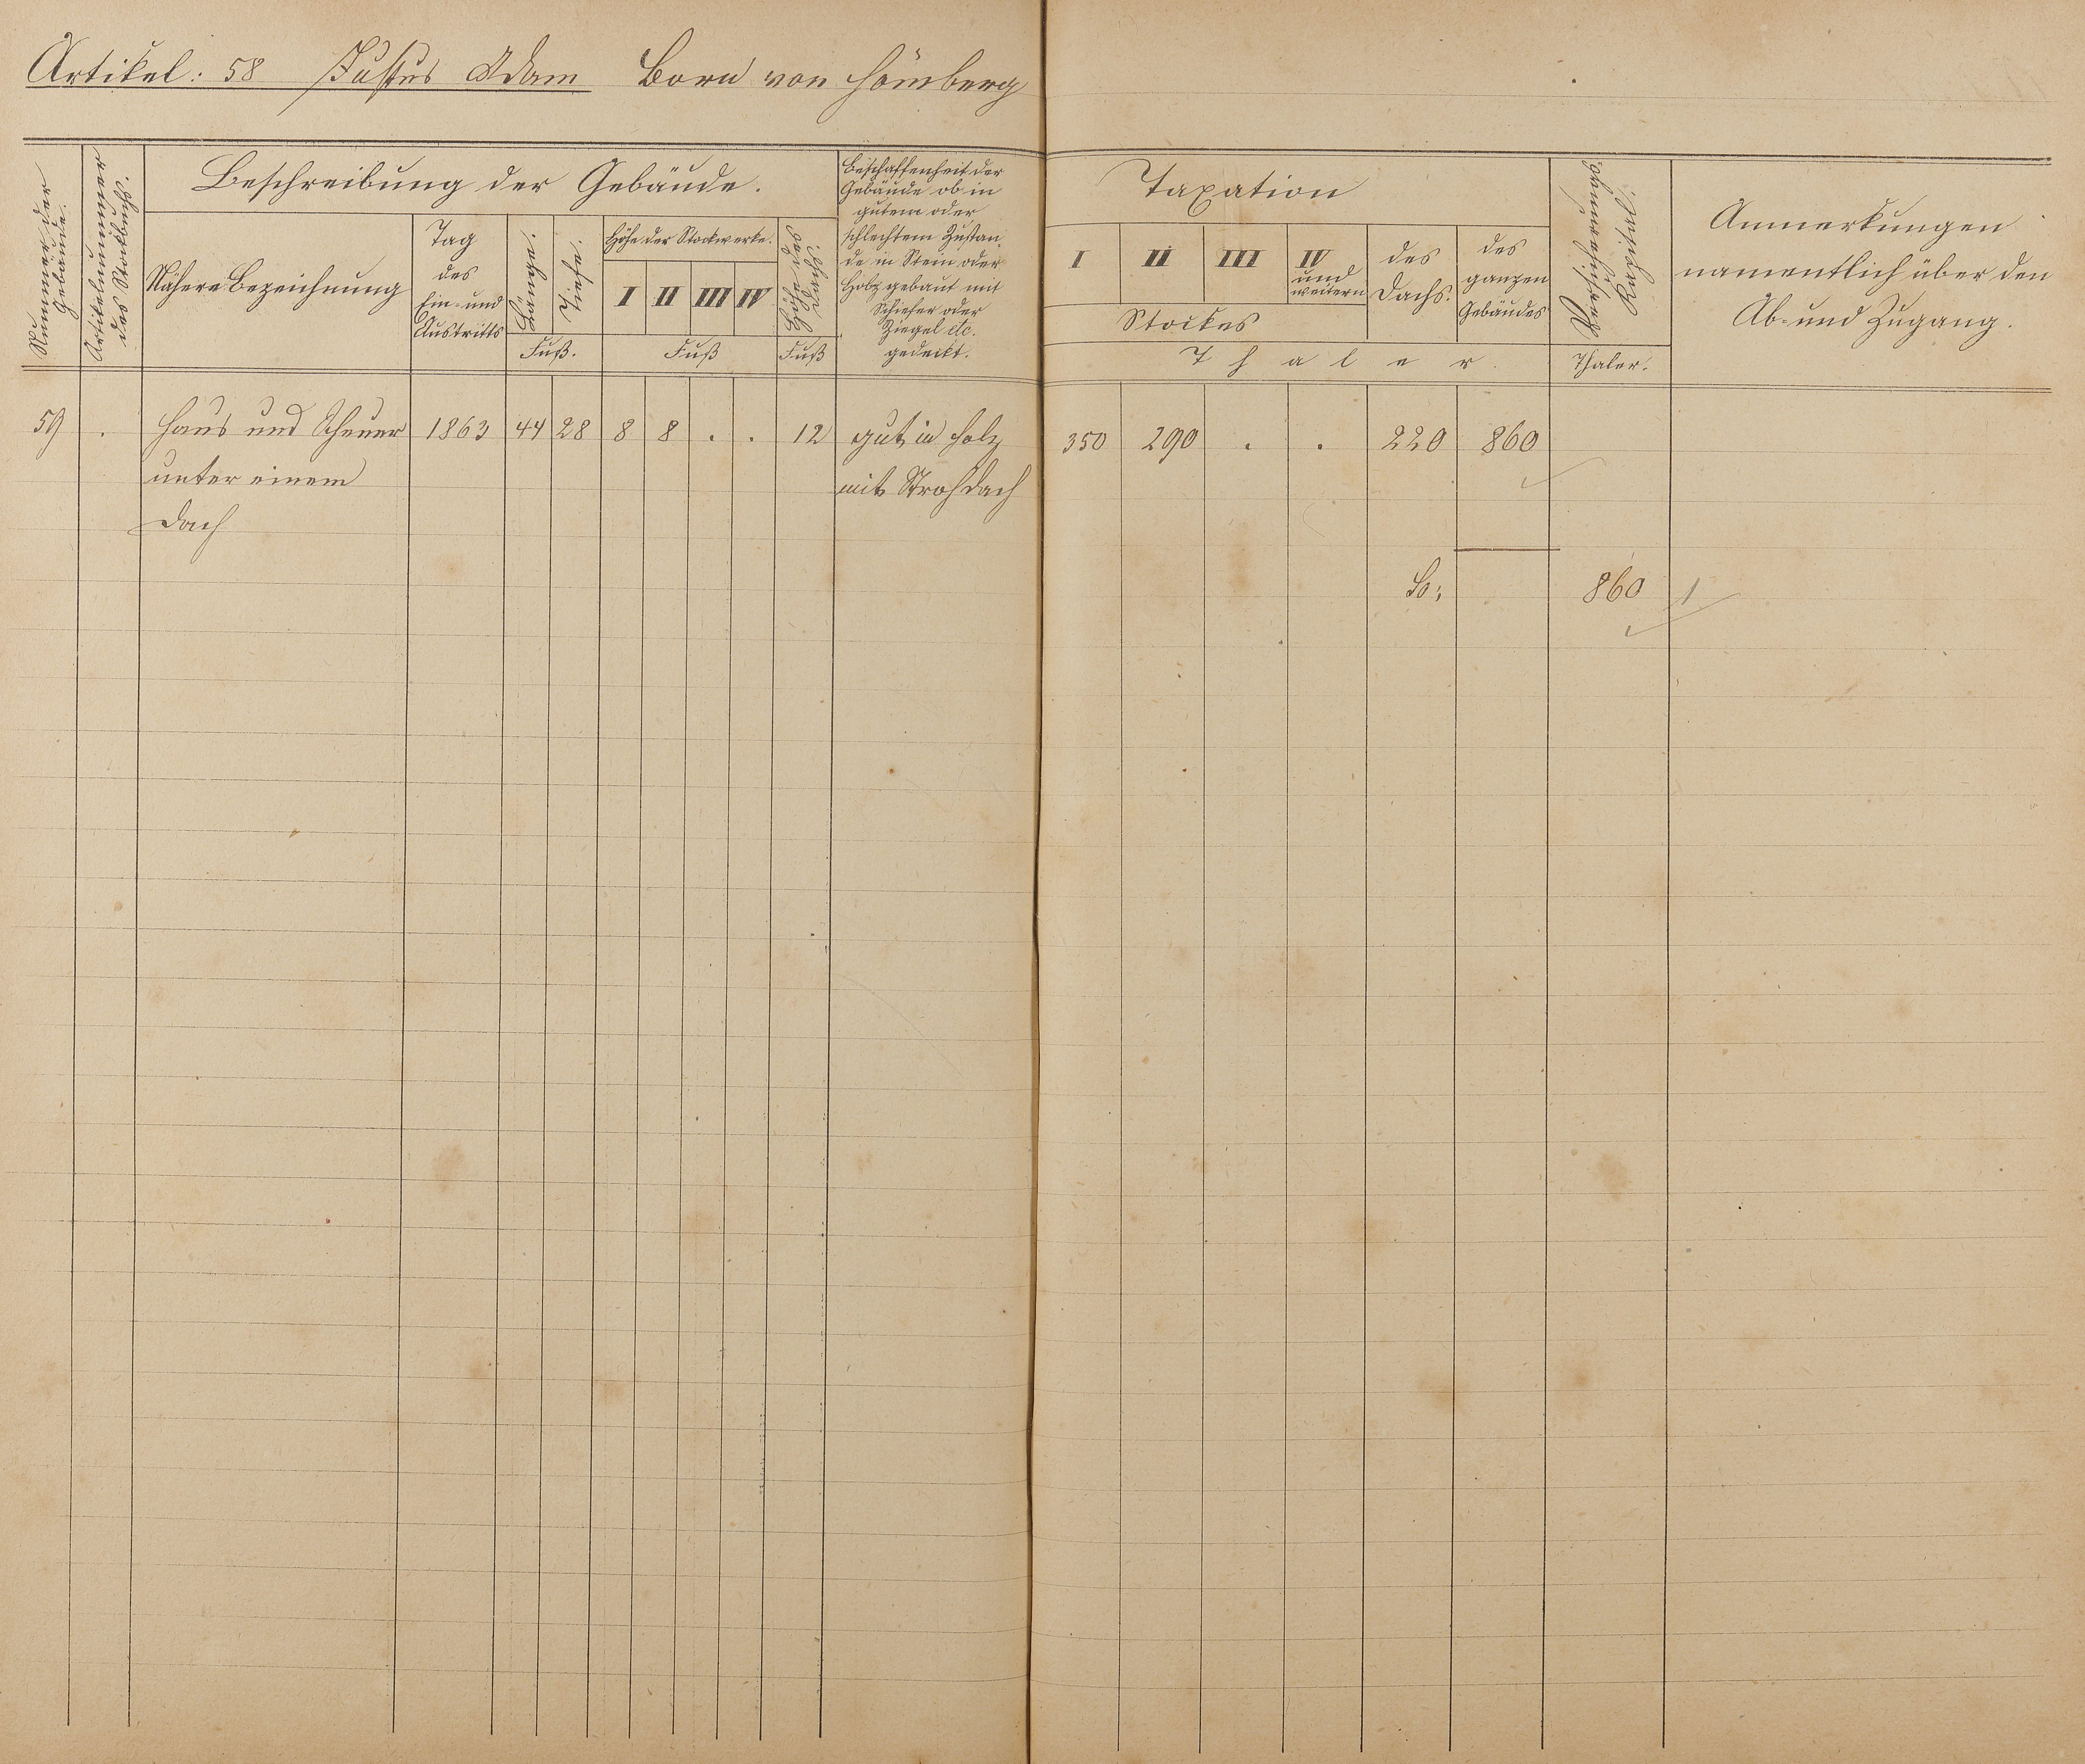 Artikel: 58 Justus Adam Born von Hömberg
Nummer der Gebäude.
Artikelnummer des Stockbuchs.
Beschreibung der Gebäude.
Nähere Bezeichnung
Tag des Ein- und Austritts
Länge.
Tiefe.
Fuß.
Höhe der Stockwerke.
I II III IV
Fuß
Höhe des Dachs.
Fuß
Beschaffenheit der
Gebäude ob in
gutem oder
schlechtem Zustan-
de in Stein oder
Holz gebaut mit
Schiefer oder
Ziegel etc.
gedeckt.
Taxation
I II III IV und weitern
Stockes
des Dachs.
des ganzen Gebäudes
Thaler.
Versicherungs Capital
Thaler.
Anmerkungen
namentlich über den
Ab- und Zugang.
59 . Haus und Scheuer 1863 44 28 8 8 . . 12 gut in Holz 350 290 . . 220 860
unter einem mit Strohdach
Dach
860 1